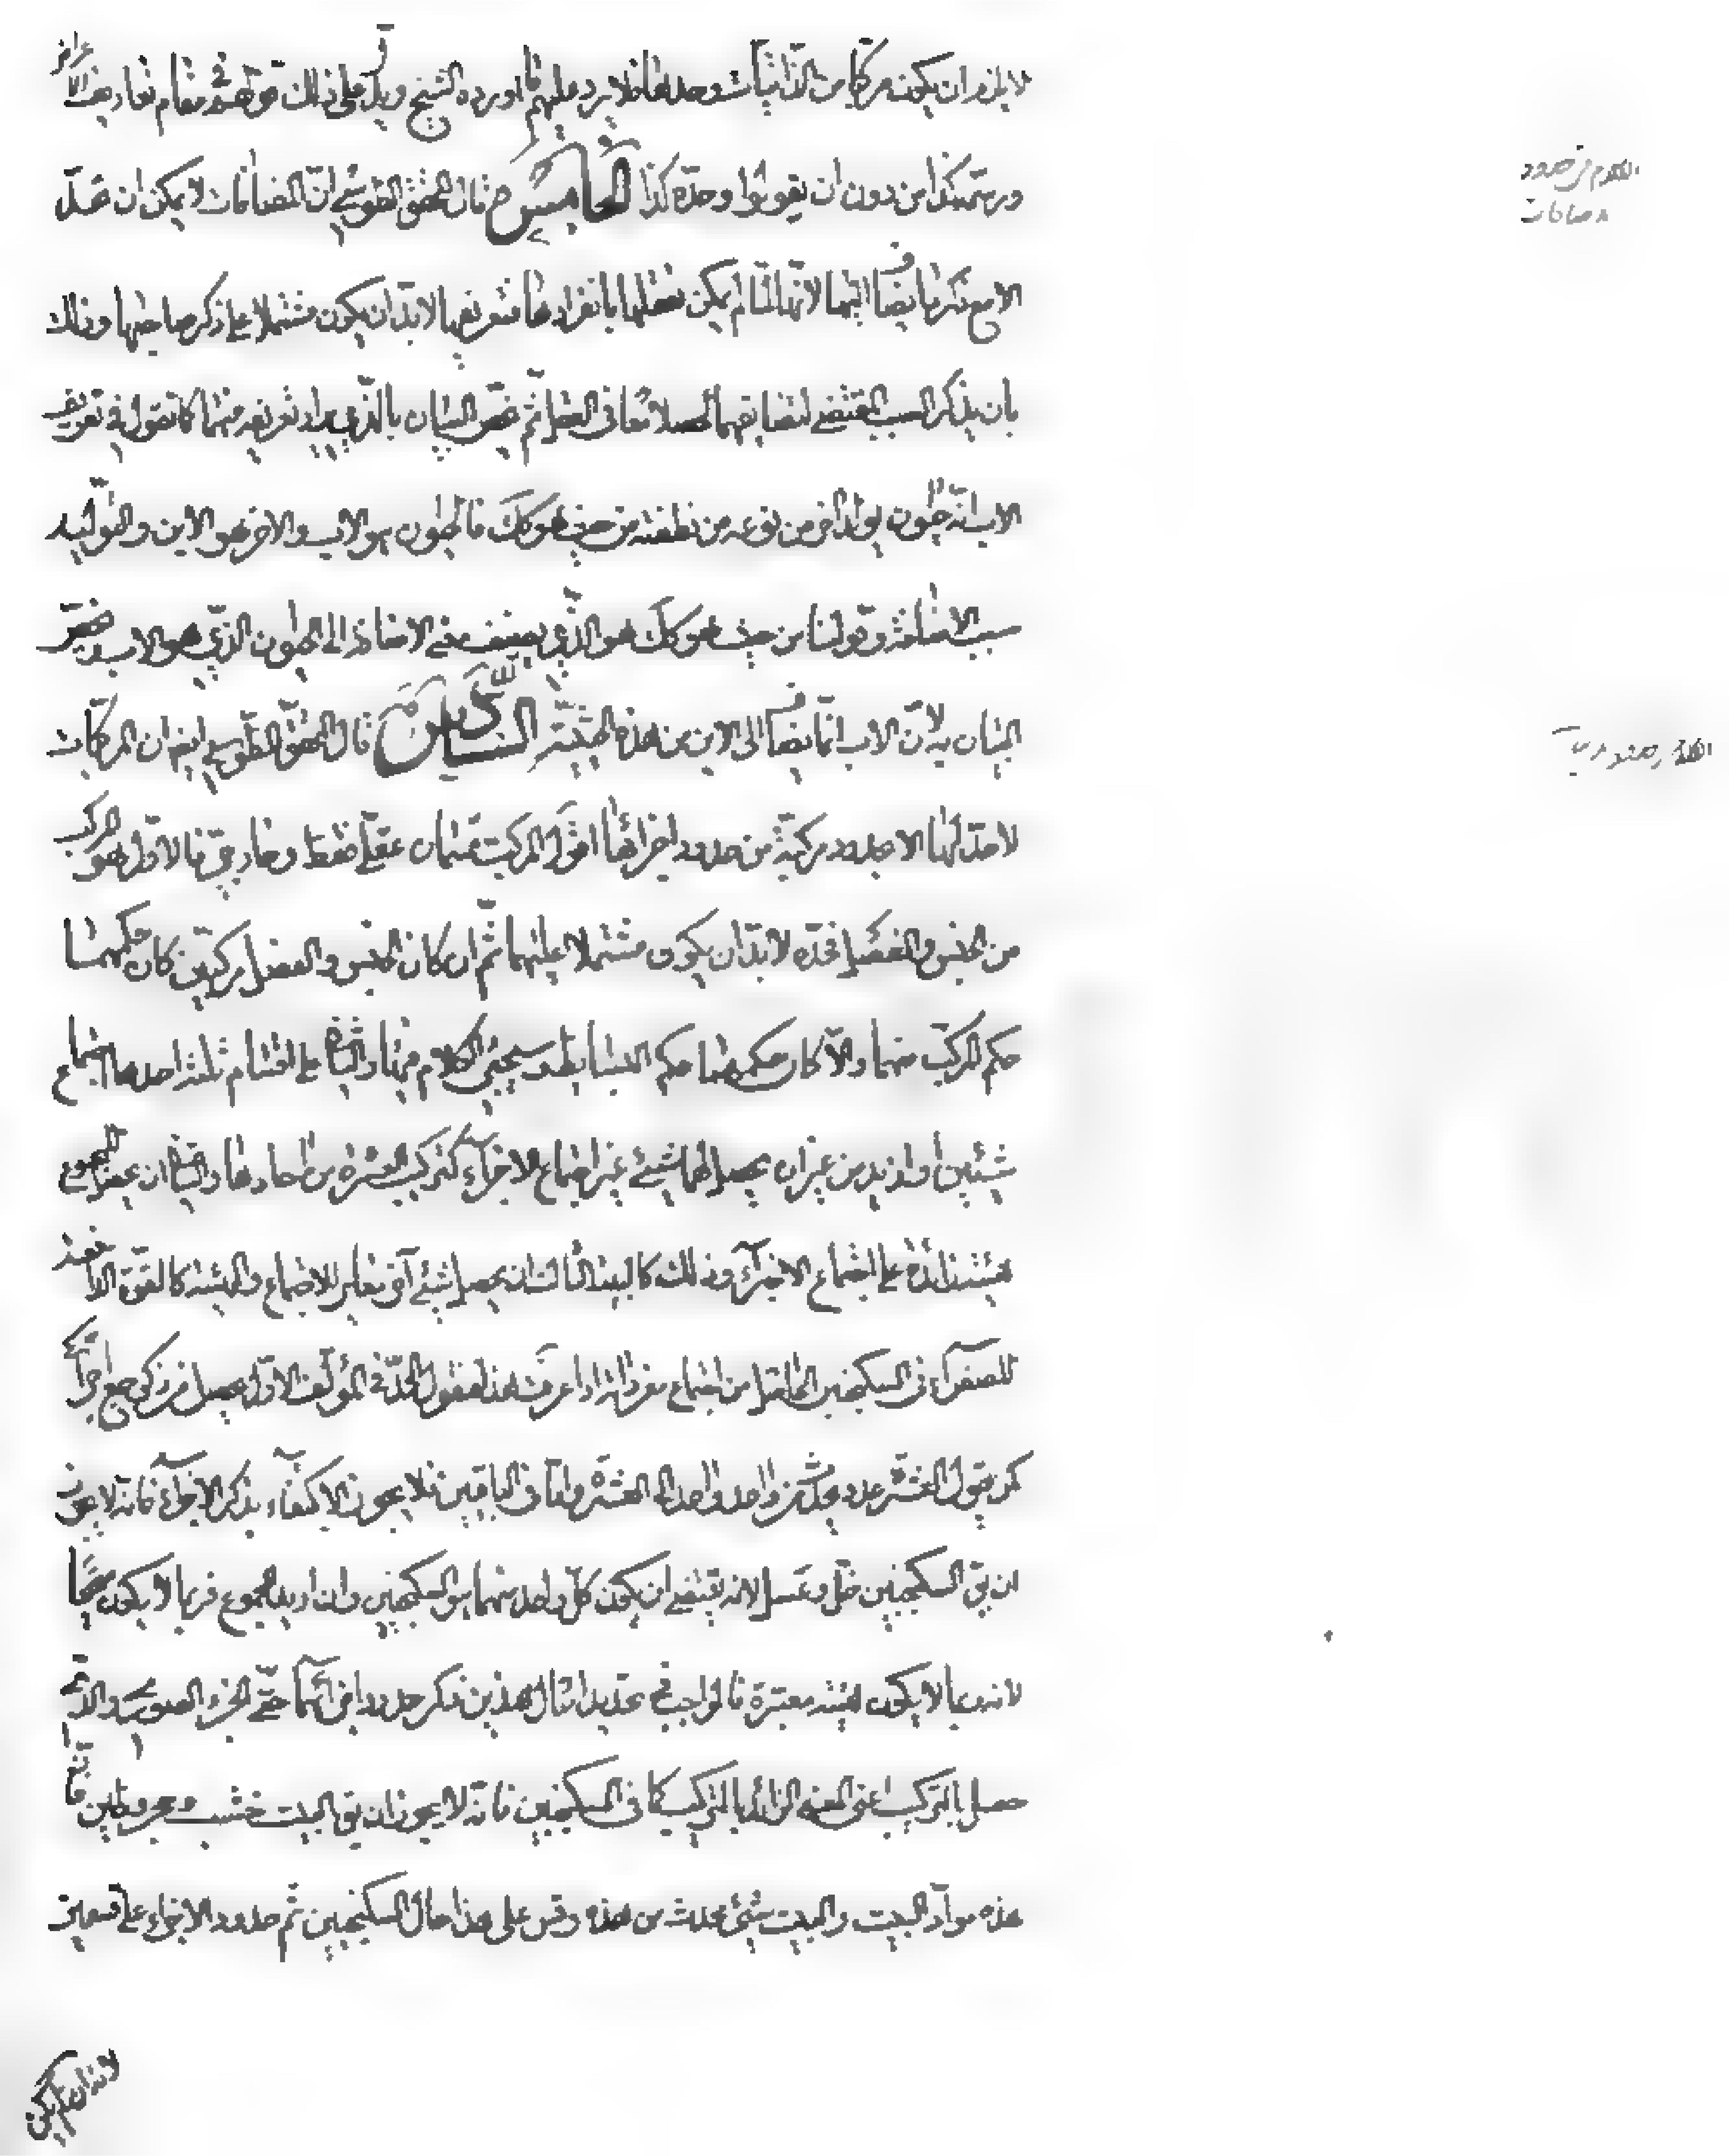 لا يلزم ان يكون مركبا من الذاتيات وحدها فلا يرد عليهم ما اورده الشيخ ويدل على ذلك قولهم في مقام تعاريف الاعراض
ورسمه كذا من دون ان يقولوا وحده كذا الخامس قال المحقق الطوسي ان المضافات لا يمكن ان تحد
الا مع ذكر ما يضاف اليها لانها لما لم يمكن تعقلها بانفرادها فتعريفها لابد ان يكون مشتملا على ذكر صاحبها وذلك
بان يذكر السبب المقتضي لتضايفهما ليحصلا معا في العقل ثم يخص البيان بالذي يراد تعريفه منهما كما تقول في تعريف
الاب انه حيوان يولد اخر من نوعه من نطفته من حيث هو كك فالحيوان هو الاب والاخر هو الابن والتوليد
سبب الاضافة وقولنا من حيث هو كك هو الذي يضيف معنى الاضافة الى الحيوان الذي هو الاب فيخص
البيان به لان الاب انما يضاف الى الابن من هذه الحيثية السادس قال المحقق الطوسي ايضا ان المركبات
لا حد لها الا بحدود مركبة من حدود اجزائها اقول المركب قسمان عقلي فقط وخارجي فالاول هو المركب
من الجنس والفصل فحده لابد ان يكون مشتملا عليهما ثم ان كان الجنس والفصل مركبين كان حكمهما
حكم المركب منهما والا كان حكمهما حكم البسايط وسيجيئ الكلام فيها والثاني على اقسام ثلثة احدها اجتماع
شيئين او ازيد من غير ان يحصل لهما شيئ غير اجتماع الاجزاء كتركيب العشرة من احادها والثاني ان يحصل للمجموع
هيئة زائدة على اجتماع الاجزاء وذلك كالبيت الثالث ان يحصل شيئ آخر مغاير للاجتماع والهيئة كالقوة
للصفراء في السكنجبين الحاصل من اجتماع مفرداته اذا عرفت هذا فنقول الحد في المؤلف الاول يحصل من ذكر جميع اجزائه
كمن يقول العشرة عدد يحدث من واحد وواحد الى العشرة واما في الباقيين فلا يجوز الاكتفاء بذكر الاجزاء فانه لا يجوز
ان يق السكنجبين خل وعسل لانه يقتضي ان يكون كل واحد منهما هو السكنجبين وان اريد المجموع فربما لا يكون صحيحا
لانه ربما لا يكون هيئته معتبرة فالواجب في تحديد امثال هذين ذكر حدود اجزائهما حتى الجزء الصوري والذي
حصل بالتركيب اعني المعنى الزائد بالتركيب كما في السكنجبين فانه لا يجوز ان يق البيت خشب وحجر وطين فان
هذه مواد البيت والبيت شيئ يحدث من هذه وقس على هذا حال السكنجبين ثم حدود الاجزاء على قسمين
لانه ان لم يكن
الكلام في حدود